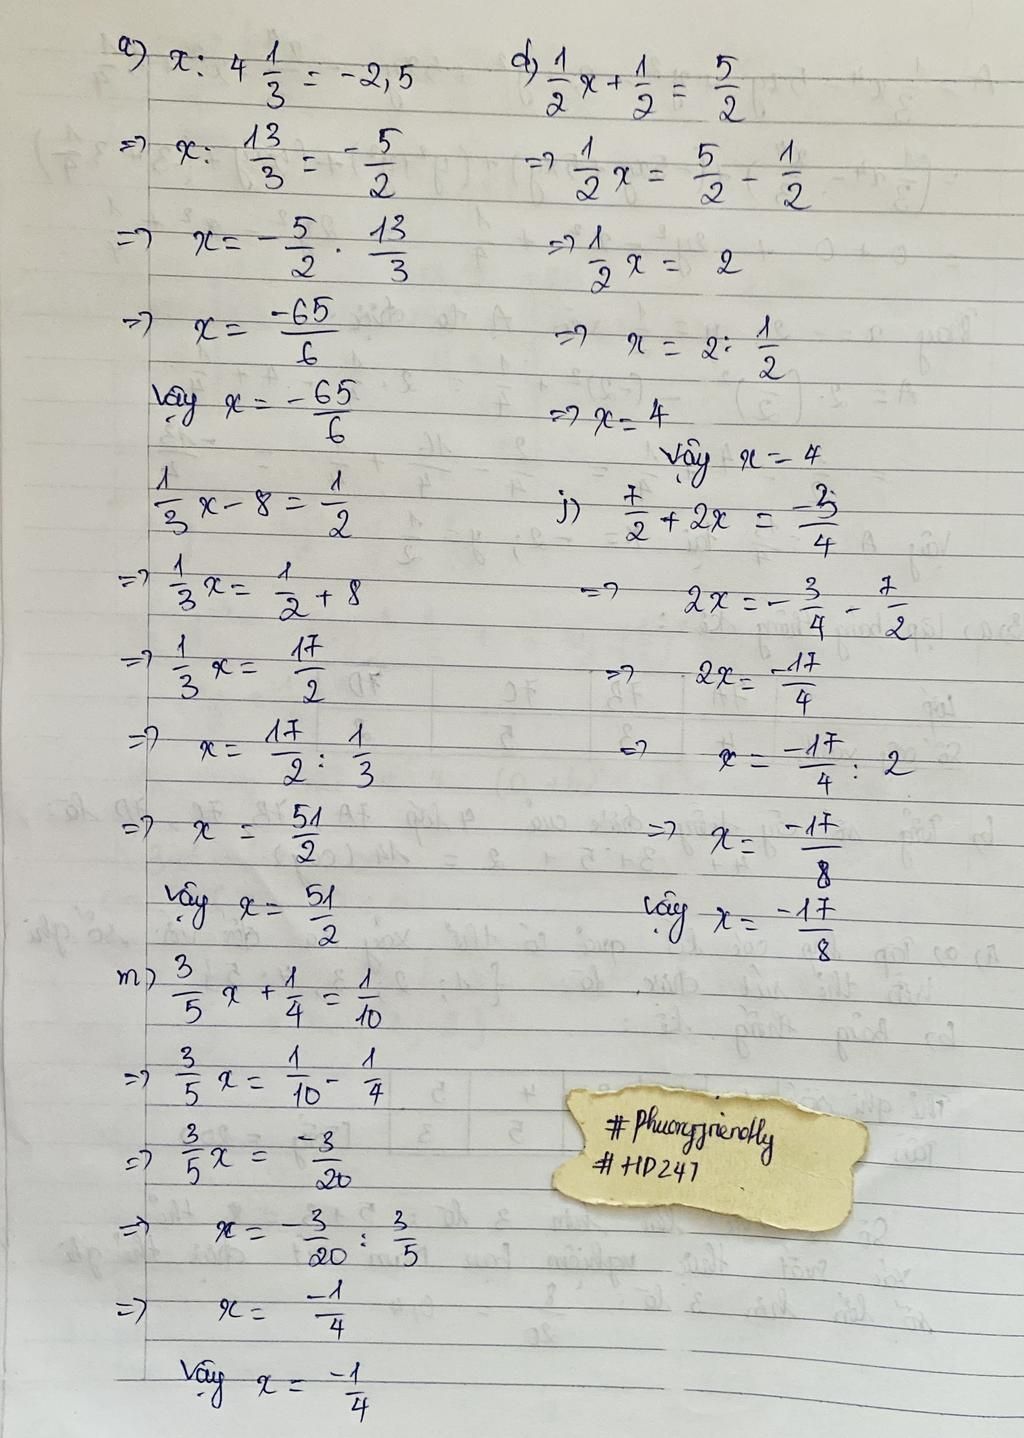 a) x : 4 1/3 = -2,5
=> x : 13/3 = -5/2
=> x = -5/2 . 13/3
=> x = -65/6
Vậy x = -65/6
1/3 x - 8 = 1/2
=> 1/3 x = 1/2 + 8
=> 1/3 x = 17/2
=> x = 17/2 : 1/3
=> x = 51/2
Vậy x = 51/2
m) 3/5 x + 1/4 = 1/10
=> 3/5 x = 1/10 - 1/4
=> 3/5 x = -3/20
=> x = -3/20 : 3/5
=> x = -1/4
Vậy x = -1/4
d) 1/2 x + 1/2 = 5/2
=> 1/2 x = 5/2 - 1/2
=> 1/2 x = 2
=> x = 2 : 1/2
=> x = 4
Vậy x = 4
j) 7/2 + 2x = -3/4
=> 2x = -3/4 - 7/2
=> 2x = -17/4
=> x = -17/4 : 2
=> x = -17/8
Vậy x = -17/8
# Phuongfriendly
# HD247